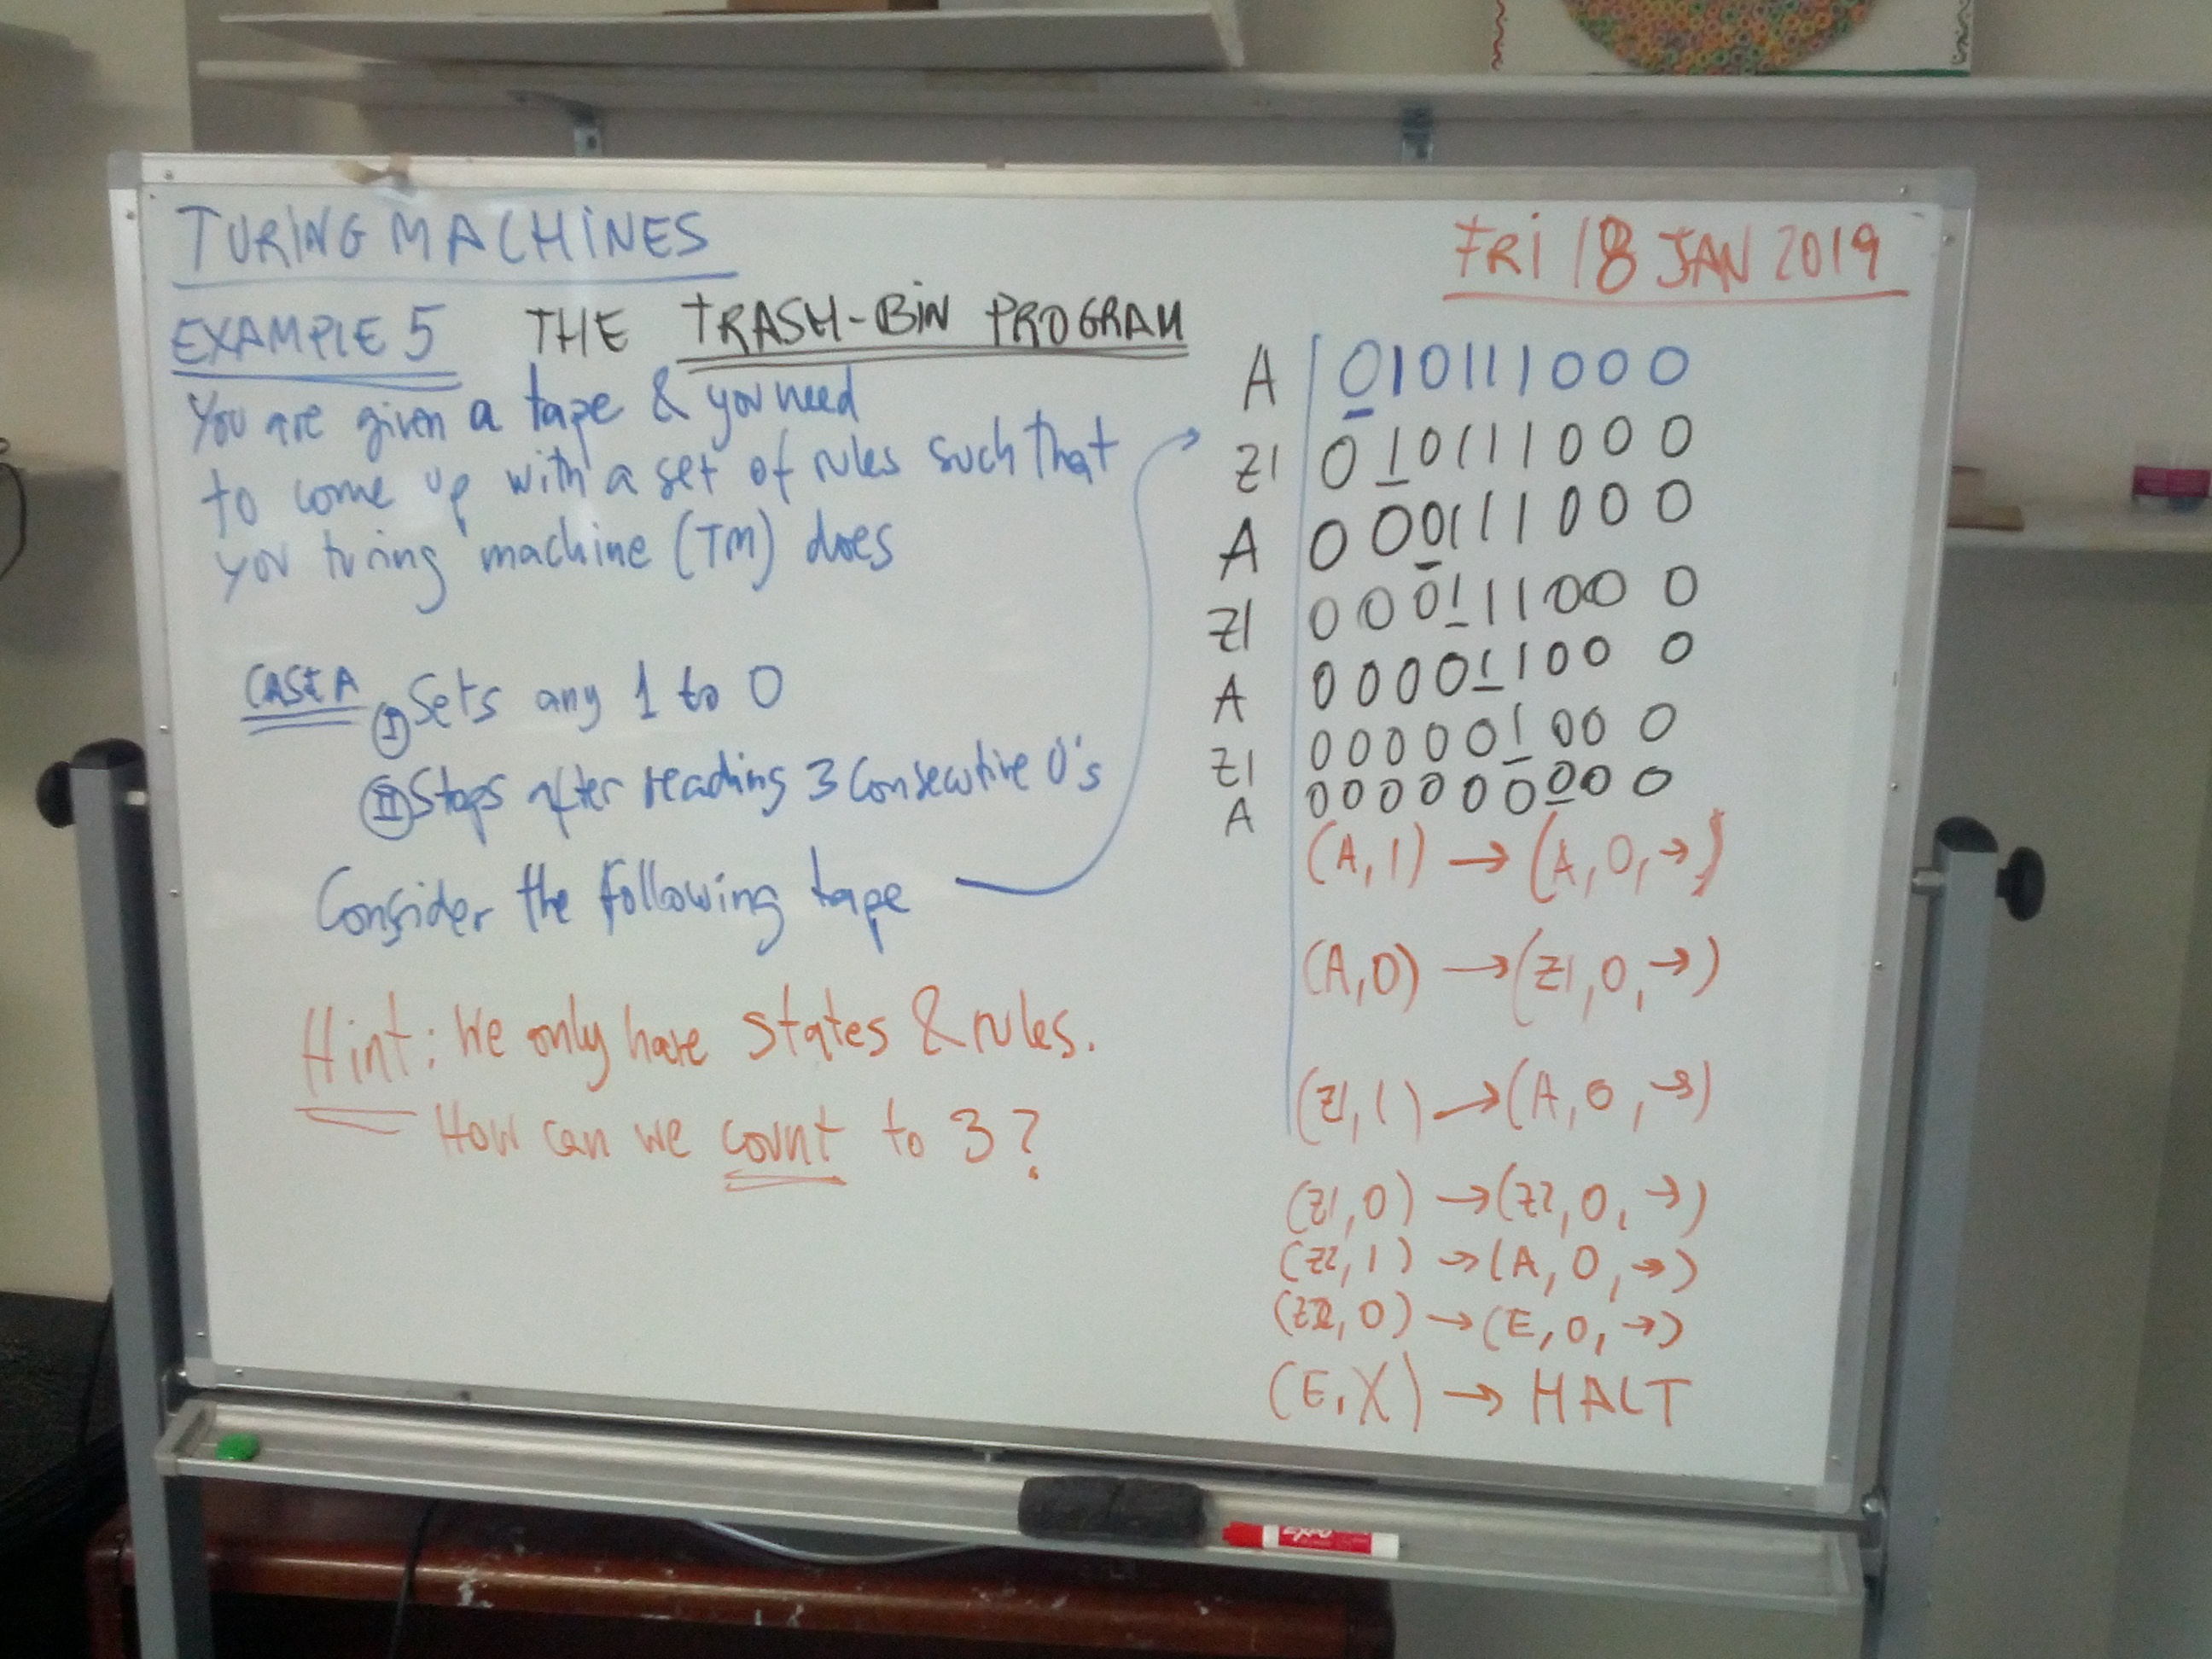 TURING MACHINES
FRI 18 JAN 2019
EXAMPLE 5 THE TRASH-BIN PROGRAM
You are given a tape & you need
to come up with a set of rules such that
you turing machine (TM) does
CASE A I Sets any 1 to 0
II Stops after reading 3 consecutive 0's
Consider the following tape
Hint: We only have states & rules.
How can we count to 3?
A 010111000
Z1 010111000
A 000111000
Z1 000111000
A 000011000
Z1 000001000
A 0000000000
(A, 1) → (A, 0, →)
(A, 0) → (Z1, 0, →)
(Z1, 1) → (A, 0, →)
(Z1, 0) → (Z2, 0, →)
(Z2, 1) → (A, 0, →)
(Z2, 0) → (E, 0, →)
(E, X) → HALT
EXPO